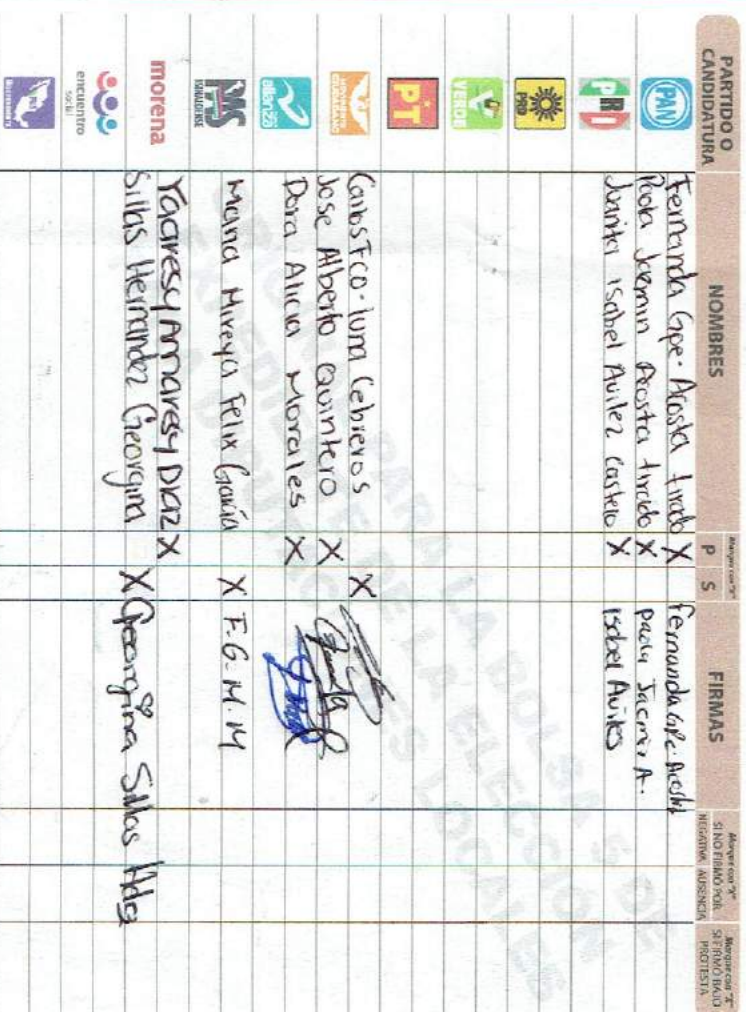 PARTIDO O
CANDIDATURA
NOMBRES
Marque con "X"
P S
FIRMAS
Marque con "X"
SI NO FIRMÓ POR
NEGATIVA AUSENCIA
Marque con "X"
SI FIRMÓ BAJO
PROTESTA
PAN
Fernanda Gpe. Acosta tirado X Fernanda Gpe. Acosta
Paola Jazmin Acosta tirado X Paola Jazmin A.
PRI
Juanita Isabel Avilez Castelo X Isabel Aviles
PRD
VERDE
PT
MOVIMIENTO
CIUDADANO
Carlos Fco. luna Cebreros X
Jose Alberto Quintero X
alianza
Dora Alicia Morales X
PAIS
Maria Mireya Felix García X F.G.M.M
morena
Yaaresy Amaresy Diaz X
Sillas Hernandez Georgina X Georgina Sillas Hdz
encuentro
social
INDEPENDIENTE
PARA LA BOLSA 5 DE
EXPEDIENTE DE LA ELECCIÓN
DIPUTACIONES LOCALES